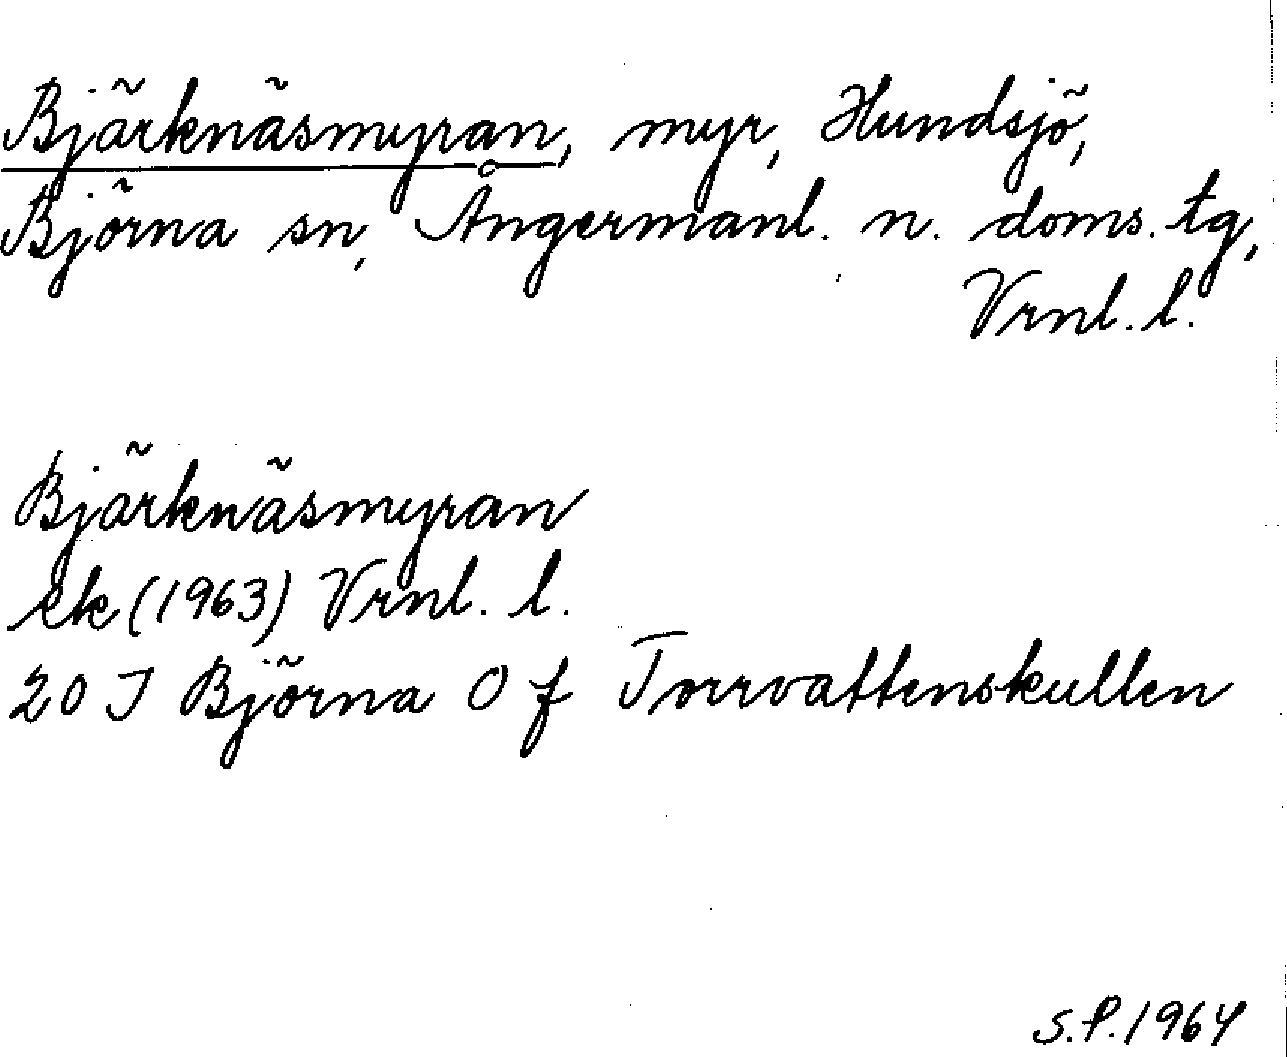 Bjärknäsmyran, myr, Hundsjö,
Björna sn, Ångermanl. n. doms. tg,
Vrnl. l.
Bjärknäsmyran
ek (1963) Vrnl. l.
20 J Björna O f Torrvattenskullen
S.P. 1964